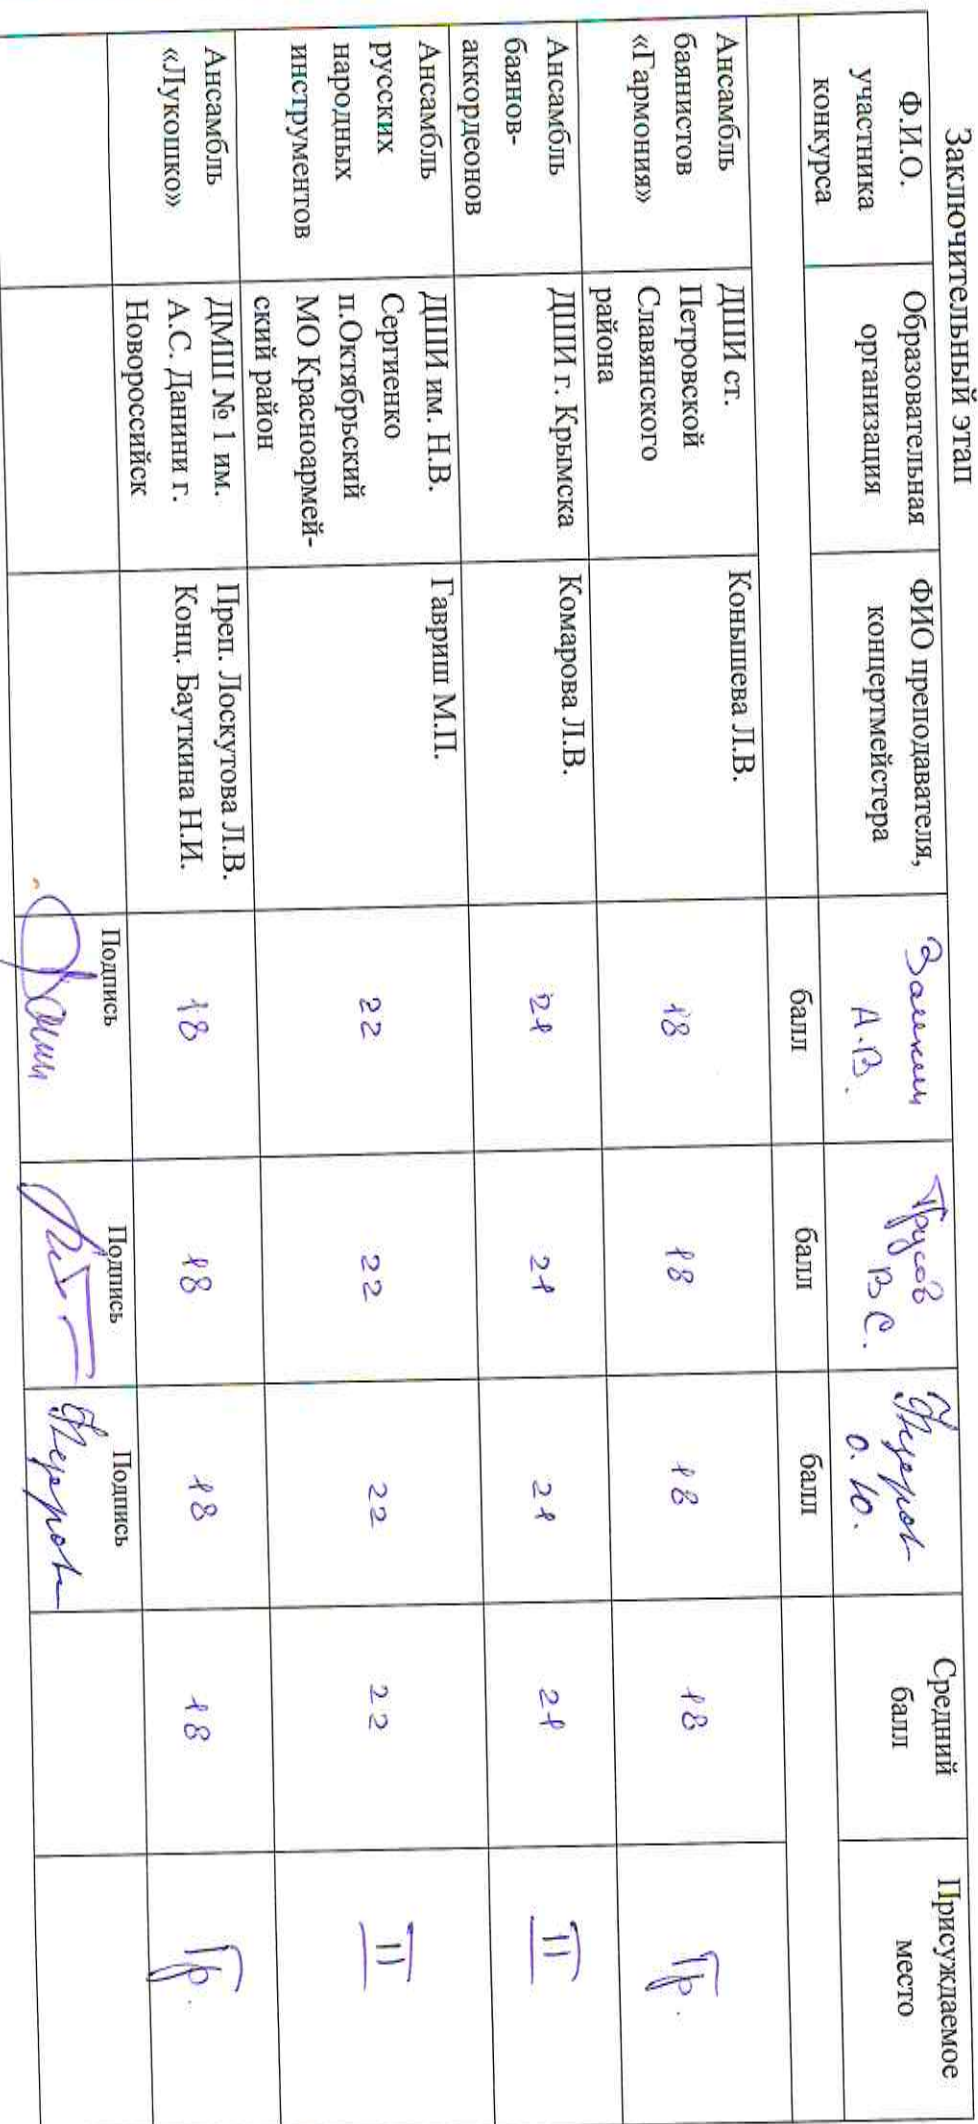 Заключительный этап
Ф.И.О.
участника
конкурса
Образовательная
организация
ФИО преподавателя,
концертмейстера
Заикин
А.В.
Трусов
В С.
О.Ю.
Средний
балл
Присуждаемое
место
балл
балл
балл
Ансамбль
баянистов
«Гармония»
ДШИ ст.
Петровской
Славянского
района
Конышева Л.В.
18
18
18
18
Гр.
Ансамбль
баянов-
аккордеонов
ДШИ г. Крымска
Комарова Л.В.
21
21
21
21
II
Ансамбль
русских
народных
инструментов
ДШИ им. Н.В.
Сергиенко
п.Октябрьский
МО Красноармей-
ский район
Гавриш М.П.
22
22
22
22
II
Ансамбль
«Лукошко»
ДМШ № 1 им.
А.С. Данини г.
Новороссийск
Преп. Лоскутова Л.В.
Конц. Бауткина Н.И.
18
18
18
18
Гр.
Подпись
Подпись
Подпись